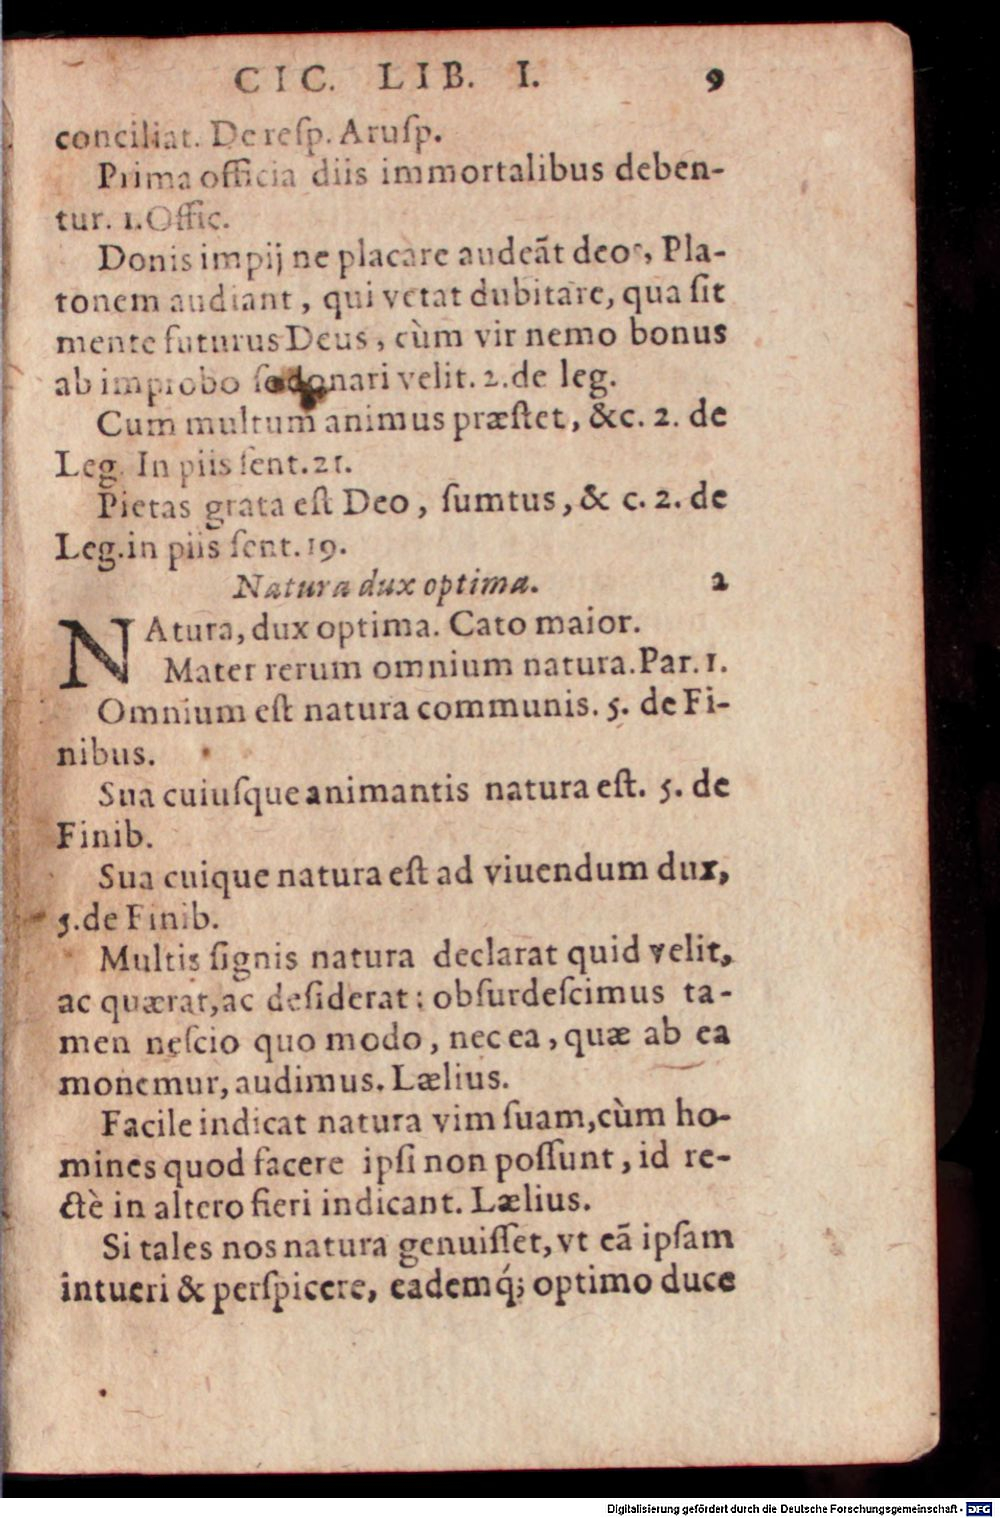 CIC. LIB. I. 9
conciliat. De reſp. Aruſp.
Prima officia diis immortalibus deben-
tur. 1. Offic.
Donis impij ne placare audeãt deos, Pla-
tonem audiant, qui vetat dubitare, qua ſit
mente futurus Deus, cùm vir nemo bonus
ab improbo ſe donari velit. 2. de leg.
Cum multum animus præſtet, &c. 2. de
Leg. In piis ſent. 21.
Pietas grata eſt Deo, ſumtus, & c. 2. de
Leg. in piis ſent. 19.
Natura dux optima. 2
NAtura, dux optima. Cato maior.
Mater rerum omnium natura. Par. 1.
Omnium eſt natura communis. 5. de Fi-
nibus.
Sua cuiuſque animantis natura eſt. 5. de
Finib.
Sua cuique natura eſt ad viuendum dux,
5. de Finib.
Multis ſignis natura declarat quid velit,
ac quærat, ac deſiderat: obſurdeſcimus ta-
men neſcio quo modo, nec ea, quæ ab ea
monemur, audimus. Lælius.
Facile indicat natura vim ſuam, cùm ho-
mines quod facere ipſi non poſſunt, id re-
ctè in altero fieri indicant. Lælius.
Si tales nos natura genuiſſet, vt eã ipſam
intueri & perſpicere, eademq́; optimo duce
Digitalisierung gefördert durch die Deutsche Forschungsgemeinschaft - DFG